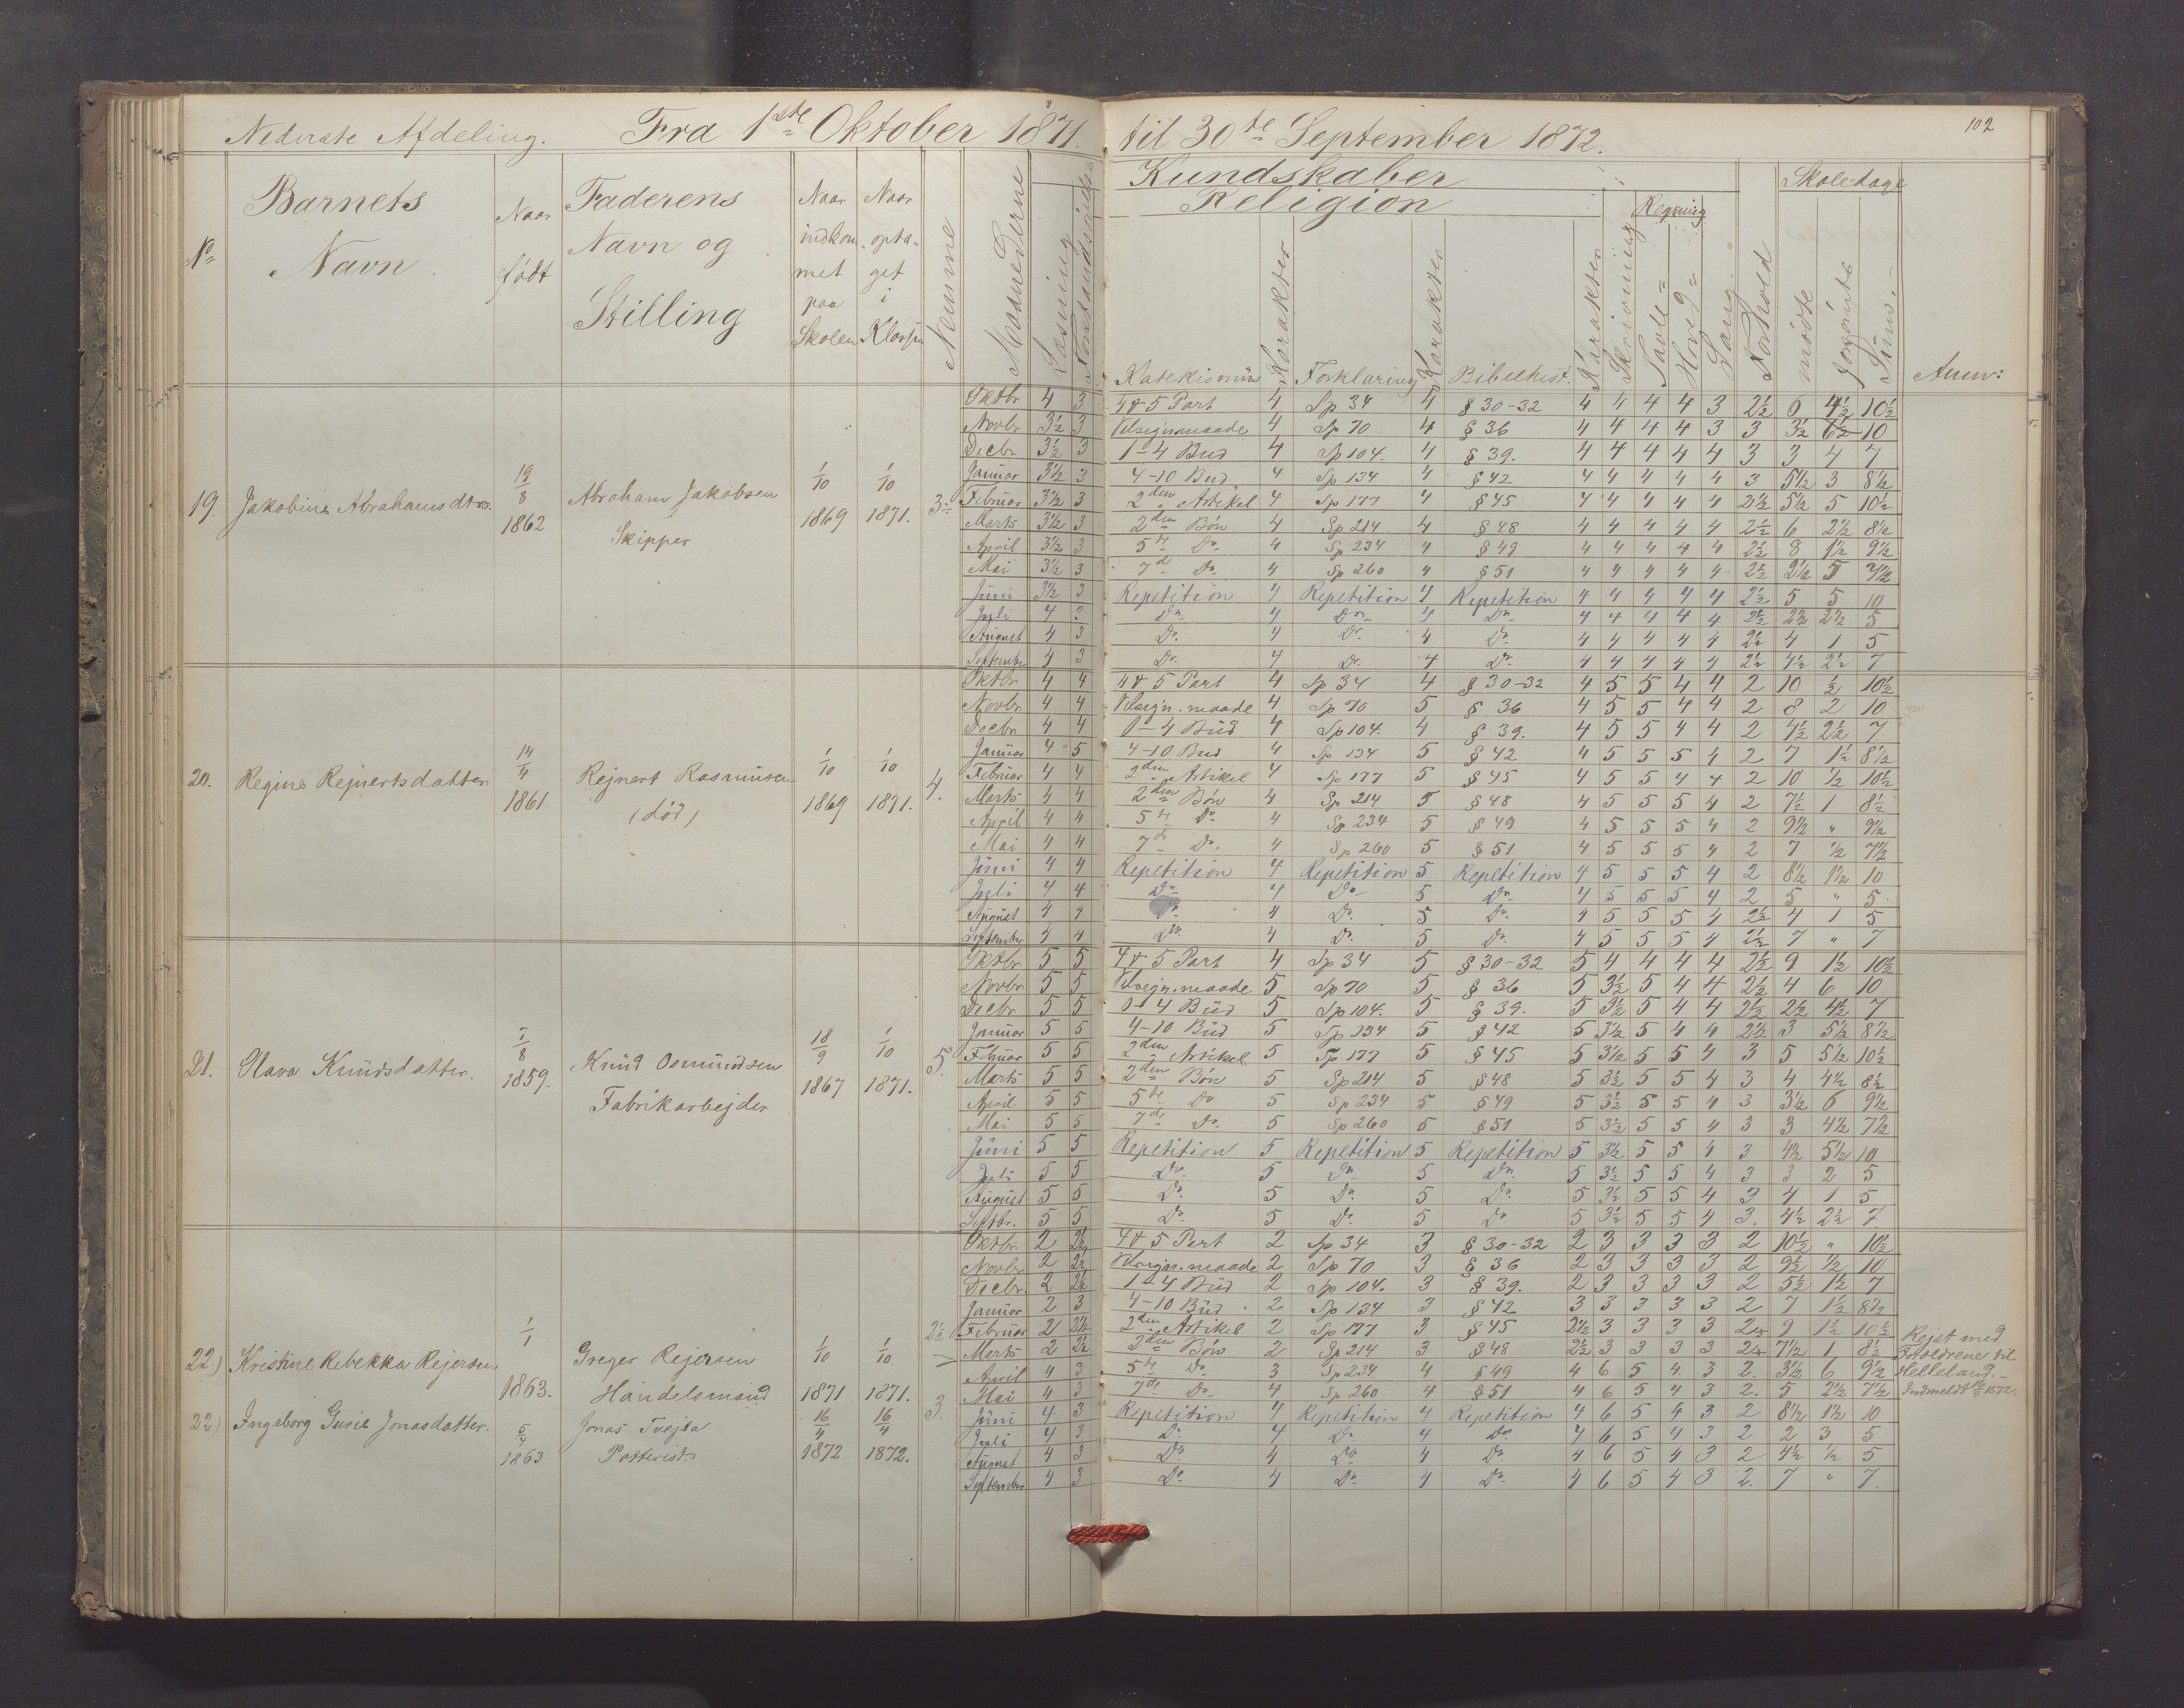 Nederste Afdeling. Fra 1ste Oktober 1871. til 30te September 1872. 102
No Barnets Navn Naar født Faderens Navn og Stilling Naar indkommet paa Skolen Naar optaget i Klassen Nemme Maanederne Læsning Forstandsøvelse
Kundskaber Skoledage
Religion Regning
Katekismus Karakter Forklaring Karakter Bibelhist. Karakter Skrivning Tavle- Hoved- Sang Forhold mødte forsømte Sum. Anm:
19 Jakobine Abrahamsdtr. 19/8 1862 Abraham Jakobsen Skipper 1/10 1869 1/10 1871. 3
Oktbr 4 3 4 & 5 Part 4 Sp 34 4 § 30-32 4 4 4 4 3 2½ 6 4½ 10½
Novbr 3½ 3 Velsign.maade 4 Sp 70 4 § 36 4 4 4 4 3 3 3½ 6½ 10
Decbr 3½ 3 1-4 Bud 4 Sp 104. 4 § 39. 4 4 4 4 4 3 3 4 7
Januar 3½ 3 4-10 Bud 4 Sp 134 4 § 42 4 4 4 4 4 3 5½ 3 8½
Februar 3½ 3 2den Artikel 4 Sp 177 4 § 45 4 4 4 4 4 2½ 5½ 5 10½
Marts 3½ 3 2den Bøn 4 Sp 214 4 § 48 4 4 4 4 4 2½ 6 2½ 8½
April 3½ 3 5te Do. 4 Sp 234 4 § 49 4 4 4 4 4 2½ 8 1½ 9½
Mai 3½ 3 7de Do. 4 Sp 260 4 § 51 4 4 4 4 4 2½ 2½ 5 7½
Juni 3½ 3 Repetition 4 Repetition 4 Repetition 4 4 4 4 4 2½ 5 5 10
Juli 4 3 Do. 4 Do. 4 Do. 4 4 4 4 4 2½ 2½ 2½ 5
August 4 3 Do. 4 Do. 4 Do. 4 4 4 4 4 2½ 4 1 5
September 4 3 Do. 4 Do. 4 Do. 4 4 4 4 4 2½ 4½ 2½ 7
20. Regine Rejnertsdatter 14/4 1861 Rejnert Rasmusen (død) 1/10 1869 1/10 1871. 4.
Oktbr 4 4 4 & 5 Part 4 Sp 34 4 § 30-32 4 5 5 4 4 2 10 ½ 10½
Novbr 4 4 Velsign.maade 4 Sp 70 5 § 36 4 5 5 4 4 2 8 2 10
Decbr 4 4 1-4 Bud 4 Sp 104. 4 § 39. 4 5 5 4 4 2 4½ 2½ 7
Januar 4 5 4-10 Bud 4 Sp 134 5 § 42 4 5 5 5 4 2 7 1½ 8½
Februar 4 4 2den Artikel 4 Sp 177 5 § 45 4 5 5 4 4 2 10 ½ 10½
Marts 4 4 2den Bøn 4 Sp 214 5 § 48 4 5 5 5 4 2 7½ 1 8½
April 4 4 5te Do 4 Sp 234 5 § 49 4 5 5 5 4 2 9½ " 9½
Mai 4 4 7de Do. 4 Sp 260 5 § 51 4 5 5 5 4 2 7 ½ 7½
Juni 4 4 Repetition 4 Repetition 5 Repetition 4 5 5 5 4 2 8½ 1½ 10
Juli 4 4 Do 4 Do 5 Do. 4 5 5 5 4 2 5 " 5
August 4 4 Do. 4 Do. 5 Do. 4 5 5 5 4 2½ 4 1 5
September 4 4 Do. 4 Do. 5 Do. 4 5 5 5 4 2½ 7 " 7
21. Olava Knudsdatter. 7/8 1859. Knud Osmundsen Fabrikarbejder 18/9 1867 1/10 1871. 5.
Oktbr 5 5 4 & 5 Part 4 Sp 34 5 § 30-32 5 4 4 4 4 2½ 9 1½ 10½
Novbr 5 5 Velsegn.maade 5 Sp 70 5 § 36 5 3½ 5 4 4 2½ 4 6 10
Decbr 5 5 1-4 Bud 5 Sp 104. 5 § 39. 5 3½ 5 4 4 2½ 2½ 4½ 7
Januar 5 5 4-10 Bud 5 Sp 134 5 § 42 5 3½ 5 4 4 2½ 3 5½ 8½
Februar 5 5 2den Artikel 5 Sp 177 5 § 45 5 3½ 5 5 4 3 5 5½ 10½
Marts 5 5 2den Bøn 5 Sp 214 5 § 48 5 3½ 5 5 4 3 4 4½ 8½
April 5 5 5te Do 5 Sp 234 5 § 49 5 3½ 5 5 4 3 3½ 6 9½
Mai 5 5 7de Do. 5 Sp 260 5 § 51 5 3½ 5 5 4 3 3 4½ 7½
Juni 5 5 Repetition 5 Repetition 5 Repetition 5 3½ 5 5 4 3 4½ 5½ 10
Juli 5 5 Do. 5 Do. 5 Do. 5 3½ 5 5 4 3 3 2 5
August 5 5 Do. 5 Do. 5 Do. 5 3½ 5 5 4 3 4 1 5
Septbr. 5 5 Do. 5 Do. 5 Do 5 3½ 5 5 4 3. 4½ 2½ 7.
22.) Kristine Rebekka Rejersen 1/1 1863. Greger Rejersen Handelsmand 1/10 1871 1/10 1871. 2½
Oktbr 2 2½ 4 & 5 Part 2 Sp 34 3 § 30-32 2 3 3 3 3 2 10½ " 10½
Novbr 2 2½ Velsign.maade 2 Sp 70 3 § 36 2 3 3 3 3 2 9½ ½ 10
Decbr. 2 2½ 1-4 Bud 2 Sp 104. 3 § 39. 2 3 3 3 3 2 5½ 1½ 7
Januar 2 3 4-10 Bud 2 Sp 134 3 § 42 3 3 3 3 3 2 7 1½ 8½
Februar 2 2½ 2den Artikel 2 Sp 177 3 § 45 2½ 3 3 3 3 2 9 1½ 10½
Marts 2 2½ 2den Bøn 2 Sp 214 3 § 48 2½ 3 3 3 3 2 7½ 1 8½
Rejst med Forældrene til Helleland.
22) Ingeborg Gurie Jonasdatter. 5/4 1863 Jonas Tvejta 16/4 1872 16/4 1872. 3.
April 4 3 5te Do 3 Sp 234 4 § 49 4 6 5 4 3 2. 3½ 6 9½
Mai 4 3 7de Do. 4 Sp 260 4 § 51 4 6 5 4 3 2. 5 2½ 7½ Indmeldt 1872.
Juni 4 3 Repetition 4 Repetition 4 Repetition 4 6 5 4 3 2 8½ 1½ 10
Juli 4 3 Do. 4 Do. 4 Do. 4 6 5 4 3 2 2 3 5
August 4 3 Do. 4 Do 4 Do. 4 6 5 4 3 2 4½ ½ 5
September 4 3 Do. 4 Do. 4 Do. 4 6 5 4 3 2. 7 " 7.